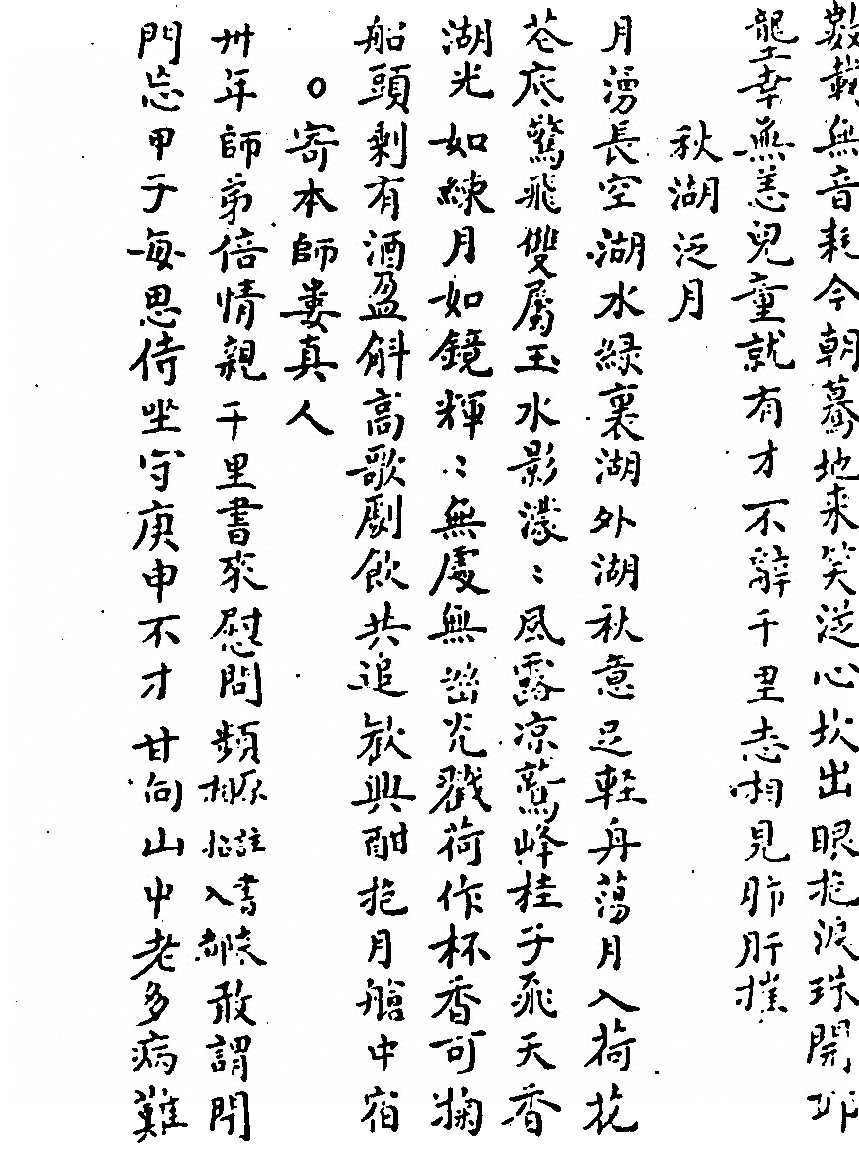 數載無音耗今朝驀地来笑從心坎出眼拖淚珠開邱
壟幸無恙兒童就有才不辭千里志相見肺肝摧
秋湖泛月
月湧長空湖水綠裏湖外湖秋意足輕舟蕩月入荷花
花底驚飛雙屬玉水影濛〻風露凉鷲峰桂子飛天香
湖光如練月如鏡輝〻無處無幽光戳荷作杯香可掬
船頭剩有酒盈斛高歌劇飲共追歡興酣抱月艙中宿
○寄本師婁真人
卅年師弟倍情親千里書來慰問頻原註書來相招入都敢謂閉
門忘甲子每思侍坐守庚申不才甘向山中老多病難